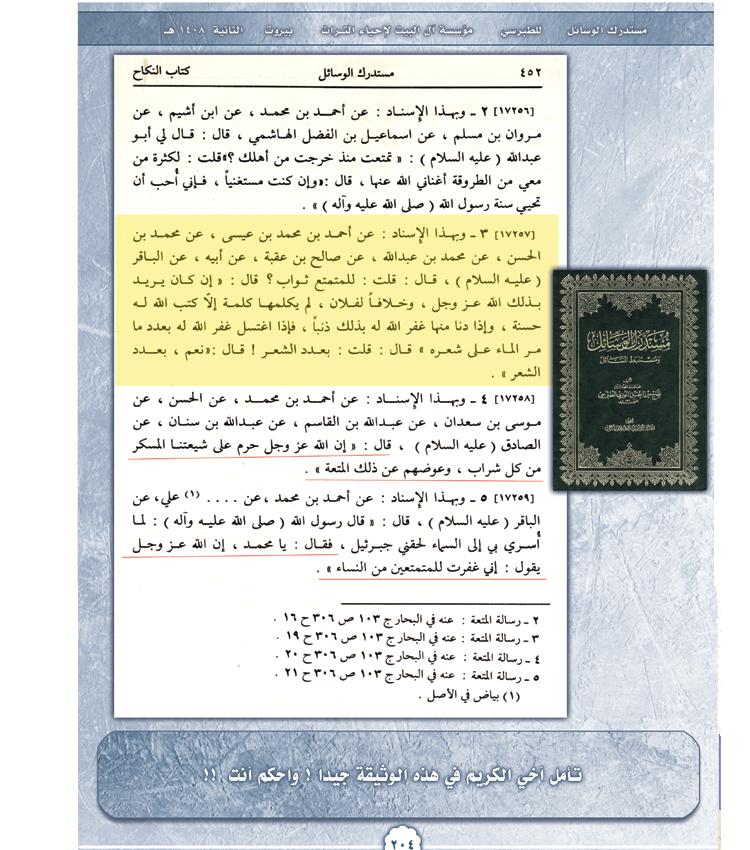 مستدرك الوسائل للطبرسي مؤسسة آل البيت لإحياء التراث بيروت الثانية ١٤٠٨ هـ
٤٥٢ مستدرك الوسائل كتاب النكاح
[١٧٢٥٦] ٢ ـ وبهذا الإسناد : عن أحمد بن محمد ، عن ابن أشيم ، عن
مروان بن مسلم ، عن اسماعيل بن الفضل الهاشمي ، قال : قال لي أبو
عبدالله ( عليه السلام ) : « تمتعت منذ خرجت من أهلك ؟» قلت : لكثرة من
معي من الطروقة أغناني الله عنها ، قال :«وإن كنت مستغنياً ، فإني أُحب أن
تحيي سنة رسول الله ( صلى الله عليه وآله ) » .
[١٧٢٥٧] ٣ ـ وبهذا الإسناد : عن أحمد بن محمد بن عيسى ، عن محمد بن
الحسن ، عن محمد بن عبدالله ، عن صالح بن عقبة ، عن أبيه ، عن الباقر
( عليه السلام ) ، قال : قلت : للمتمتع ثواب ؟ قال : « إن كان يريد
بذلك الله عز وجل ، وخلافاً لفلان ، لم يكلمها كلمة إلّا كتب الله له
حسنة ، وإذا دنا منها غفر الله له بذلك ذنباً ، فإذا اغتسل غفر الله له بعدد ما
مر الماء على شعره » قال : قلت : بعدد الشعر ! قال :«نعم ، بعدد
الشعر » .
[١٧٢٥٨] ٤ ـ وبهذا الإسناد : عن أحمد بن محمد ، عن الحسن ، عن
موسى بن سعدان ، عن عبدالله بن القاسم ، عن عبدالله بن سنان ، عن
الصادق ( عليه السلام ) ، قال : « إن الله عز وجل حرم على شيعتنا المسكر
من كل شراب ، وعوضهم عن ذلك المتعة » .
[١٧٢٥٩] ٥ ـ وبهذا الإسناد : عن أحمد بن محمد ،عن .... (١) علي، عن
الباقر ( عليه السلام ) ، قال : « قال رسول الله ( صلى الله عليه وآله ) : لما
أُسري بي إلى السماء لحقني جبرئيل ، فقال : يا محمد ، إن الله عز وجل
يقول : إني غفرت للمتمتعين من النساء » .
٢ ـ رسالة المتعة : عنه في البحار ج ١٠٣ ص ٣٠٦ ح ١٦ .
٣ ـ رسالة المتعة : عنه في البحار ج ١٠٣ ص ٣٠٦ ح ١٩ .
٤ ـ رسالة المتعة : عنه في البحار ج ١٠٣ ص ٣٠٦ ح ٢٠ .
٥ ـ رسالة المتعة : عنه في البحار ج ١٠٣ ص ٣٠٦ ح ٢١ .
(١) بياض في الأصل .
مستدرك الوسائل
ومستنبط المسائل
تأمل أخي الكريم في هذه الوثيقة جيدا ! واحكم انت !!
٢٠٤